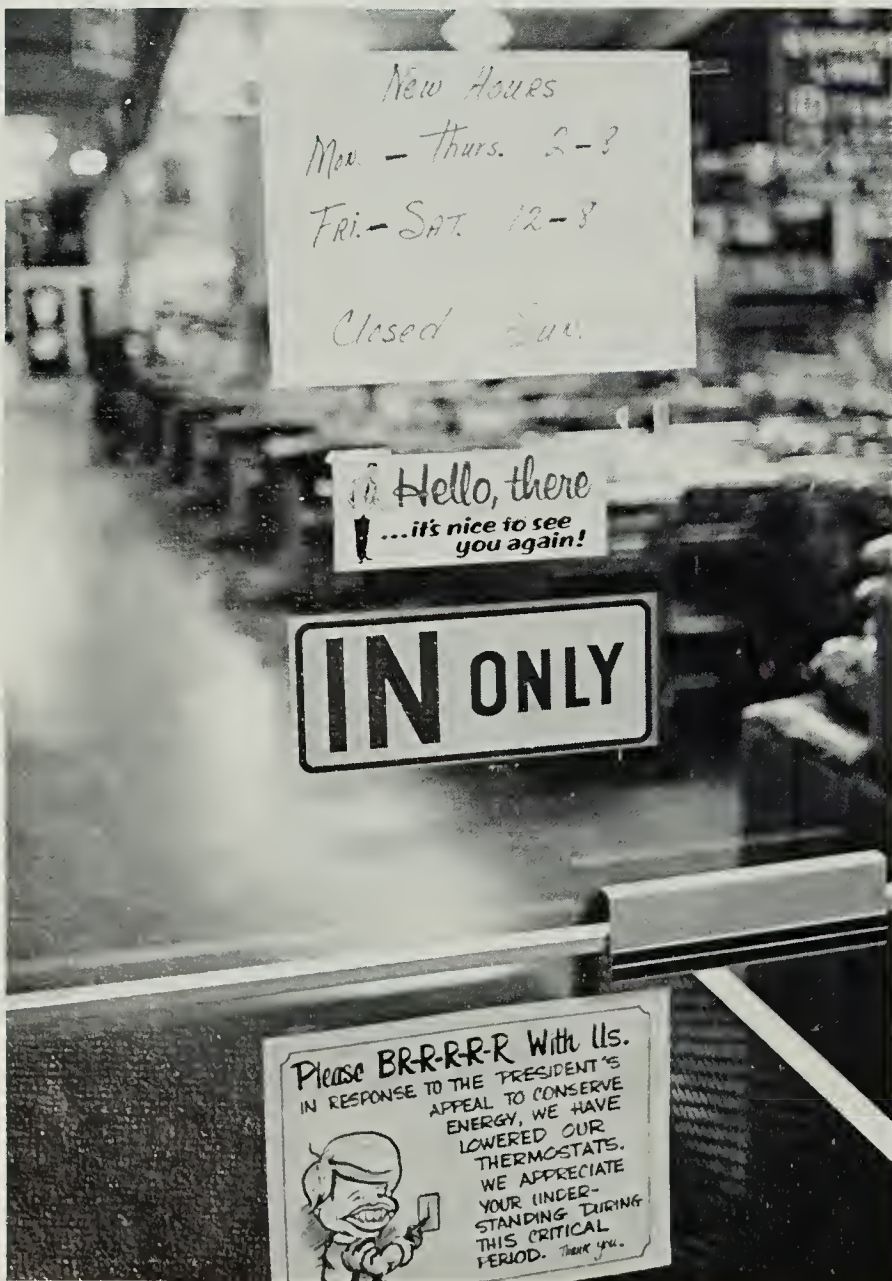 New Hours
Mon. - Thurs. 2-8
Fri.- Sat. 12-8
Closed Sun.
Hello, there
...it's nice to see
you again!
IN ONLY
Please BR-R-R-R-R With Us.
IN RESPONSE TO THE PRESIDENT'S
APPEAL TO CONSERVE
ENERGY, WE HAVE
LOWERED OUR
THERMOSTATS.
WE APPRECIATE
YOUR UNDER-
STANDING DURING
THIS CRITICAL
PERIOD. Thank you.